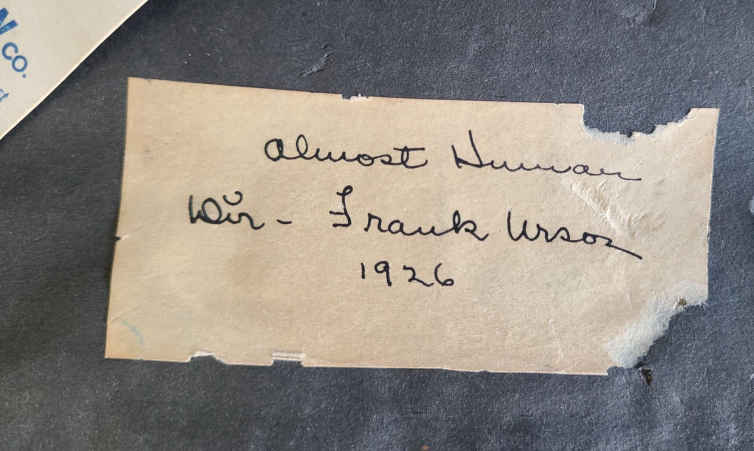 N
CO.
Almost Human
Dir - Frank Urson
1926